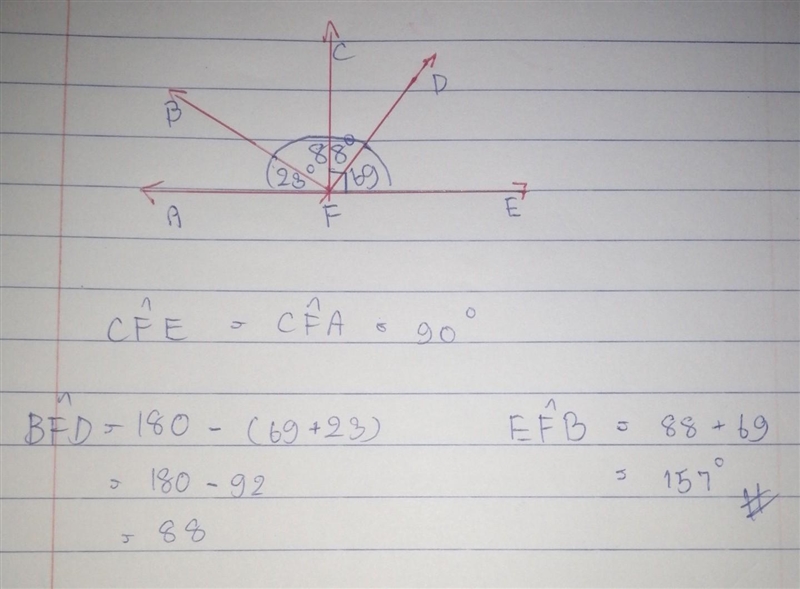 C
D
B
88°
(23°
69
A
F
E
CF̂E = CF̂A = 90°
BF̂D = 180 - (69+23)
= 180 - 92
= 88
EF̂B = 88 + 69
= 157°